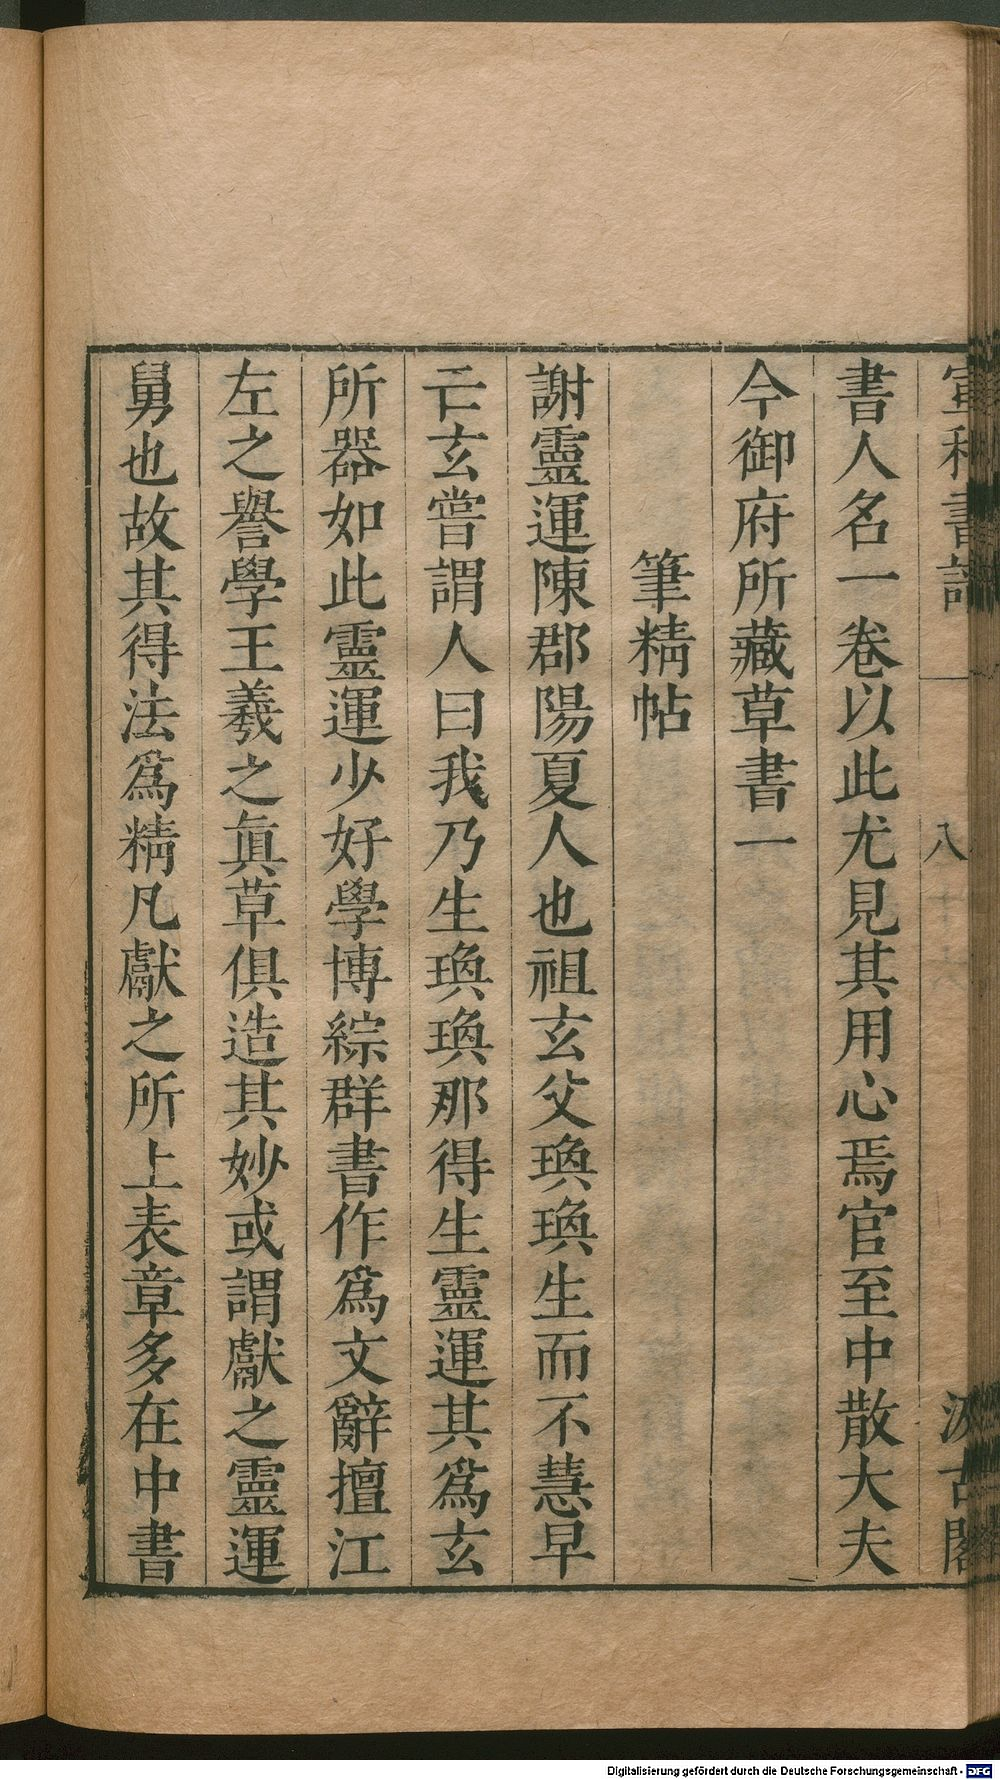 書人名一卷以此尤見其用心焉官至中散大夫
今御府所藏草書一
筆精帖
謝靈運陳郡陽夏人也祖玄父瑍瑍生而不慧早
亡玄嘗謂人曰我乃生瑍瑍那得生靈運其爲玄
所器如此靈運少好學博綜群書作爲文辭擅江
左之譽學王羲之眞草俱造其妙或謂獻之靈運
舅也故其得法爲精凡獻之所上表章多在中書
Digitalisierung gefördert durch die Deutsche Forschungsgemeinschaft - DFG